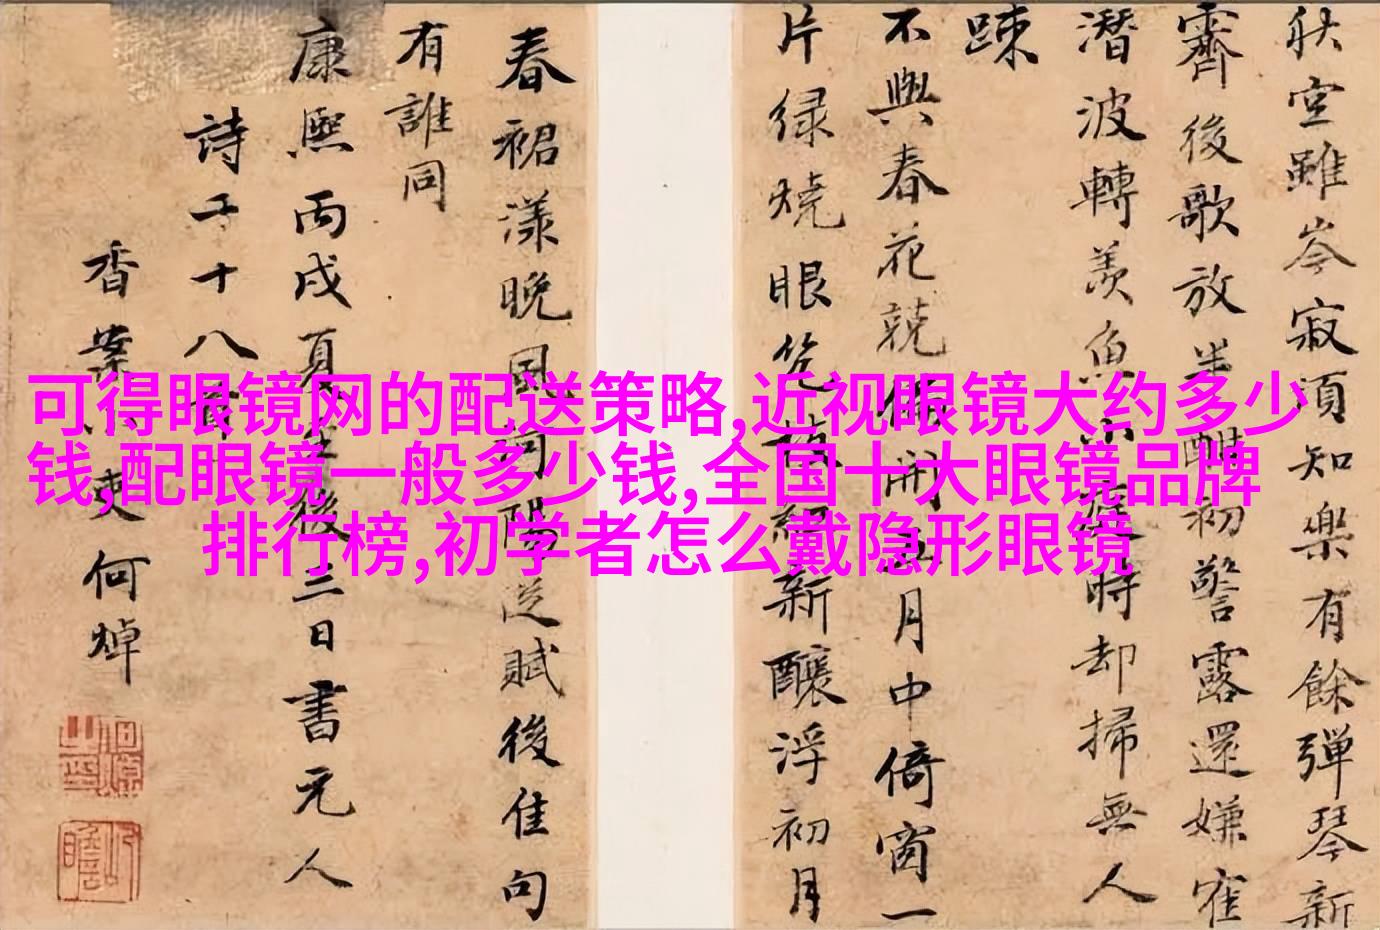 可得眼镜网的配送策略,近视眼镜大约多少
钱,配眼镜一般多少钱,全国十大眼镜品牌
排行榜,初学者怎么戴隐形眼镜
秋空雖岑寂須知樂有餘彈琴新
霽後歌放半酣初警露還嫌寉
潛波轉羨魚小庭時却掃無人
踈
不與春花競偏開五月中倚窗一
片緑燒眼枝紅新釀浮初月
春裙漾晚風向陽賦後佳句
有誰同
康熙丙戌夏至後三日書元人
詩十八首
香案小吏何焯